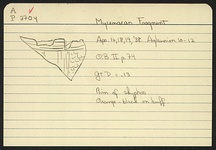 A
P 2704
Mycenaean Fragment
Apr. 16, 18, 19, '38 Asklepieion 10-12
NB. II p. 74
gr. D. = .13
Rim of skyphos
Orange-black on buff